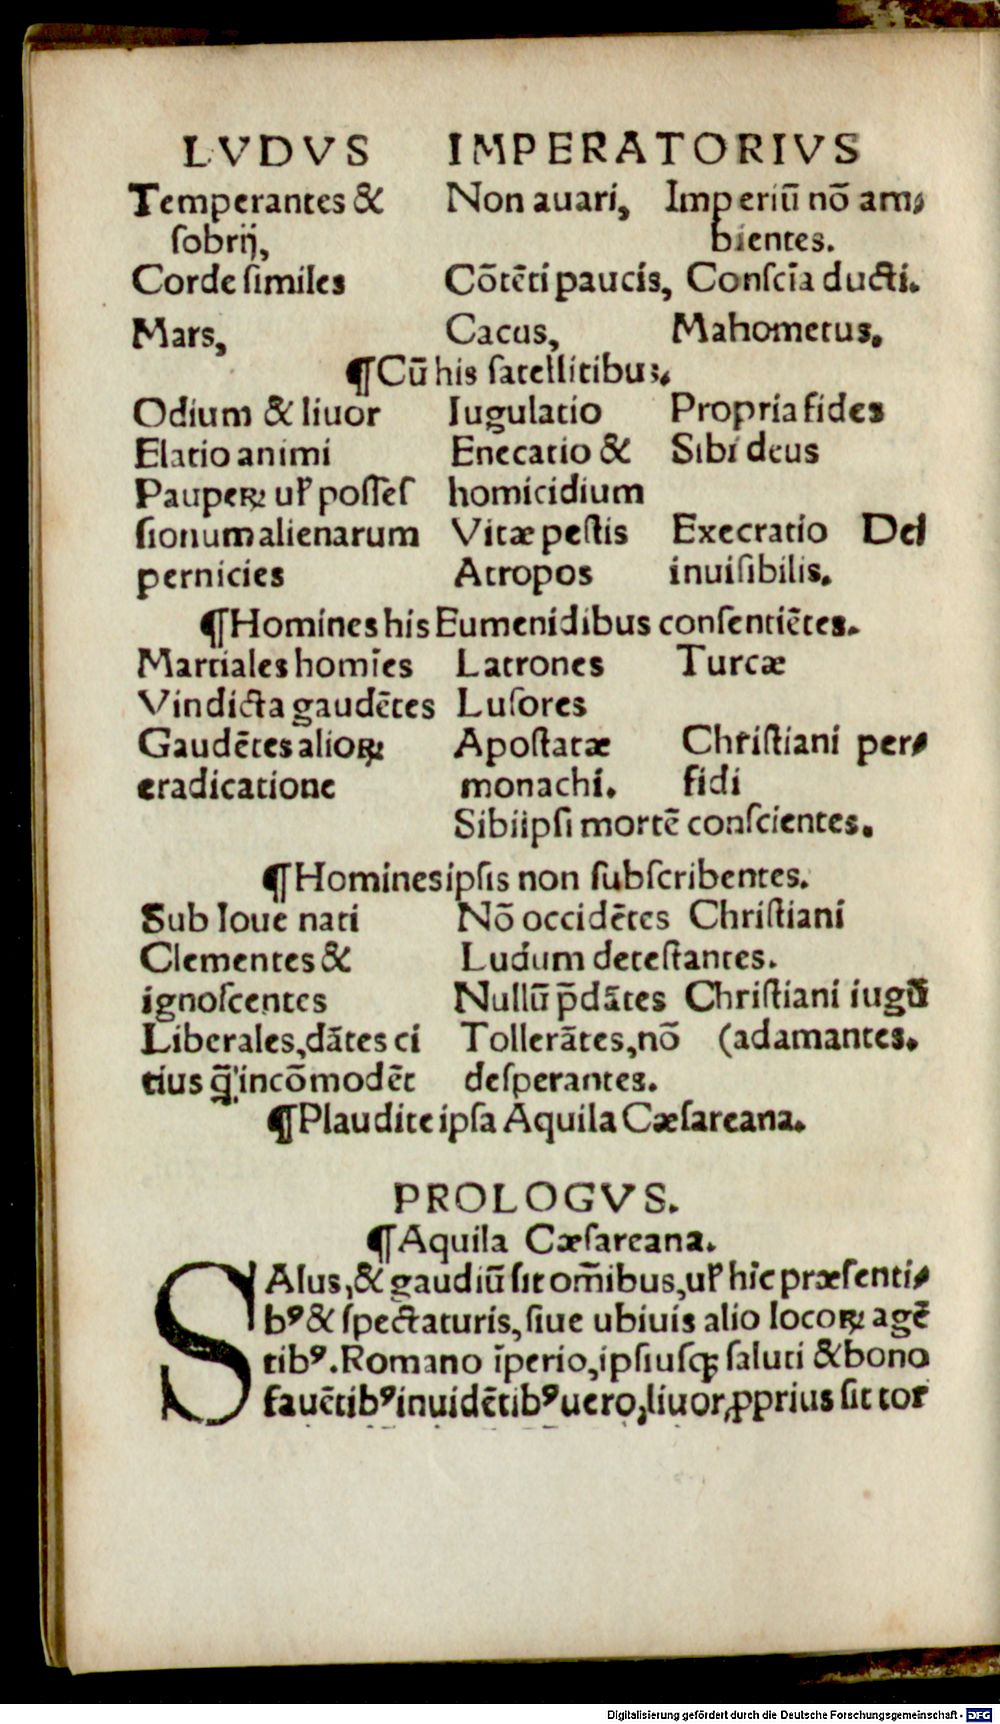 LVDVS IMPERATORIVS
Temperantes & Non auari, Imperiū nō am⸗
ſobrij, bientes.
Corde ſimiles Cōtēti paucis, Conſcīa ducti.
Mars, Cacus, Mahometus.
¶Cū his ſatellitibus.
Odium & liuor Iugulatio Propria fides
Elatio animi Enecatio & Sibi deus
Pauperꝝ uł poſſeſ homicidium
ſionum alienarum Vitæ peſtis Execratio Dei
pernicies Atropos inuiſibilis.
¶Homines his Eumenidibus conſentiētes.
Martiales homīes Latrones Turcæ
Vindicta gaudētes Luſores
Gaudētes alioꝝ Apoſtatæ Chriſtiani per⸗
eradicatione monachi. fidi
Sibiipſi mortē conſcientes.
¶Homines ipſis non ſubſcribentes.
Sub Ioue nati Nō occidētes Chriſtiani
Clementes & Ludum deteſtantes.
ignoſcentes Nullū p̄dātes Chriſtiani iugū
Liberales, dātes ci Tollerātes, nō (adamantes.
tius q̄ incōmodēt deſperantes.
¶Plaudite ipſa Aquila Cæſareana.
PROLOGVS.
¶Aquila Cæſareana.
SAlus, & gaudiū ſit om̄ibus, uł hīc præſenti⸗
bꝰ & ſpectaturis, ſiue ubiuis alio locoꝝ agē
tibꝰ. Romano īperio, ipſiuſq; ſaluti & bono
fauētibꝰ inuidētibꝰ uero, liuor, ꝓprius ſit tor
Digitalisierung gefördert durch die Deutsche Forschungsgemeinschaft - DFG